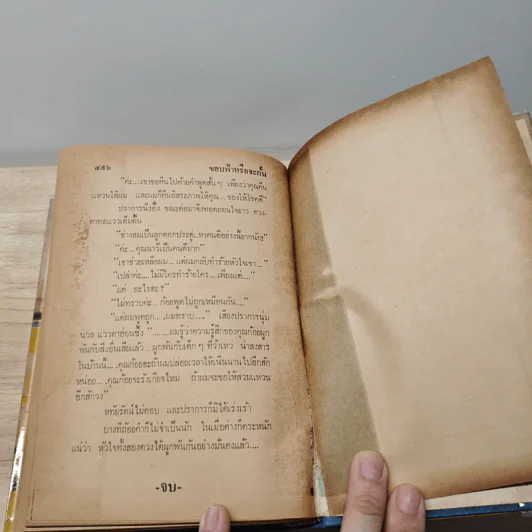 ๔๕๖ ขอบฟ้าหรือจะกั้น
"ค่ะ...เขาขอคืนไปด้วยคำพูดสั้นๆ เพียงว่าคุณคืน
แหวนให้ผม และผมก็คืนอิสระภาพให้คุณ ..ขอให้โชคดี"
ปราการนิ่งอึ้ง ขณะต่อมาจึงทอดถอนใจยาว ดวง
ตาทอแววเต็มตื้น
"ช่างสมเป็นลูกดอกประดู่...หาคนดีอย่างนี้ยากนัก!"
"ค่ะ...คุณนาวีเป็นคนดีมาก"
"เขาช่วยเหลือผม... แต่ผมกลับทำร้ายหัวใจเขา..."
"เปล่าค่ะ....ไม่มีใครทำร้ายใคร...เพียงแต่...."
"แต่ อะไรฮะ?"
"ไม่ทราบค่ะ...ก้อยพูดไม่ถูกเหมือนกัน...."
"แต่ผมพูดถูก...,ผมทราบ....." เสียงปราการนุ่ม
นวล แววตาอ่อนซึ้ง "........ผมรู้ว่าความรู้สึกของคุณก้อยผูก
พันกับสิ่งอื่นเสียแล้ว...ผูกพันกับเด็กๆ ที่ว้าเหว่ น่าสงสาร
ในบ้านนี้....คุณก้อยฮะถ้าผมปล่อยเวลาให้เนิ่นนานไปอีกสัก
หน่อย....คุณก้อยจะรังเกียจไหม ถ้าผมจะขอให้สวมแหวน
อีกสักวง"
หทัยรัตน์ไม่ตอบ และปราการก็มิได้เร่งเร้า
บางทีถ้อยคำก็ไม่จำเป็นนัก ในเมื่อต่างก็ตระหนัก
แน่ว่า หัวใจทั้งสองดวงได้ผูกพันกันอย่างมั่นคงแล้ว....
-จบ-